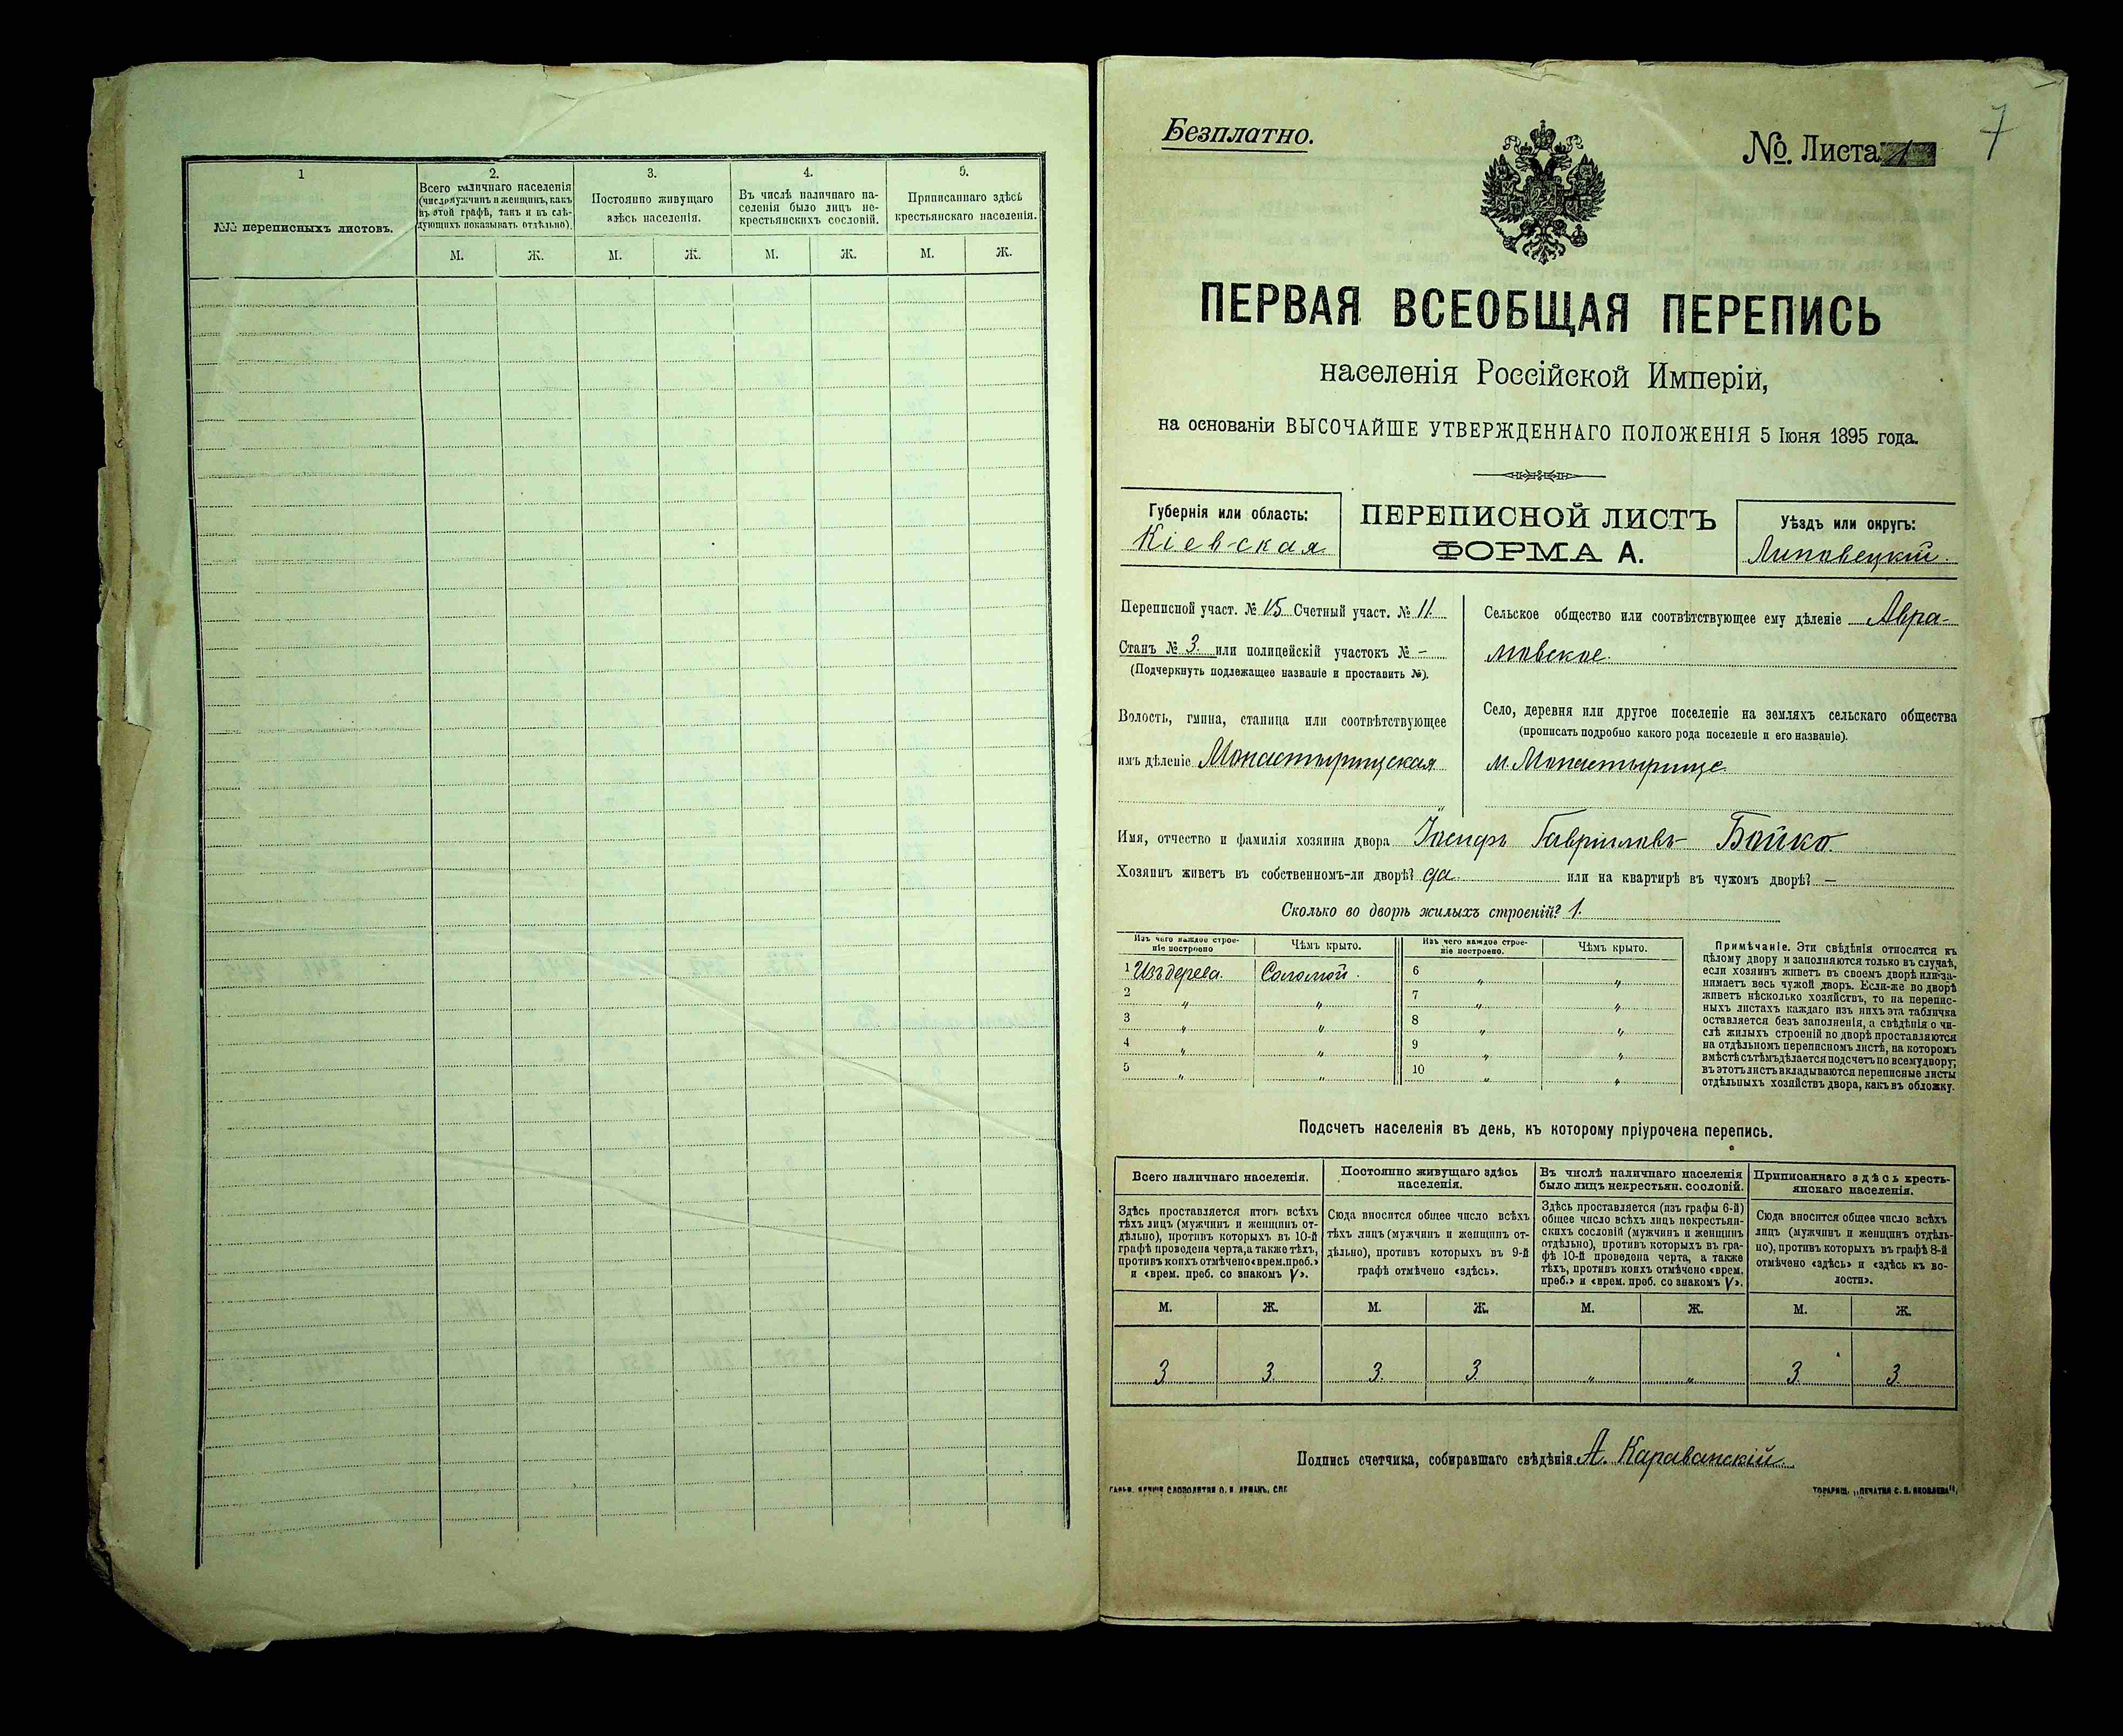 1
2.
3.
4.
5.
№№ переписныхъ листовъ.
Всего наличнаго населенія
(число мужчинъ и женщинъ, какъ
въ этой графѣ, такъ и въ слѣ-
дующихъ показывать отдѣльно).
Постоянно живущаго
здѣсь населенія.
Въ числѣ наличнаго на-
селенія было лицъ не-
крестьянскихъ сословій.
Приписаннаго здѣсь
крестьянскаго населенія.
М. Ж. М. Ж. М. Ж. М. Ж.
7
Безплатно.
№. Листа 1
ПЕРВАЯ ВСЕОБЩАЯ ПЕРЕПИСЬ
населенія Россійской Имперіи,
на основаніи ВЫСОЧАЙШЕ УТВЕРЖДЕННАГО ПОЛОЖЕНІЯ 5 Іюня 1895 года.
Губернія или область:
Кіевская
ПЕРЕПИСНОЙ ЛИСТЪ
ФОРМА А.
Уѣздъ или округъ:
Липовецкій
Переписной участ. № 15 Счетный участ. № 11.
Станъ № 3. или полицейскій участокъ № -
(Подчеркнуть подлежащее названіе и проставить №).
Волость, гмина, станица или соотвѣтствующее
имъ дѣленіе Монастырищская
Сельское общество или соотвѣтствующее ему дѣленіе Авра-
мовское.
Село, деревня или другое поселеніе на земляхъ сельскаго общества
(прописать подробно какого рода поселеніе и его названіе).
м. Монастырище.
Имя, отчество и фамилія хозяина двора Іосифъ Гавриловъ Бойко.
Хозяинъ живетъ въ собственномъ-ли дворѣ? да. или на квартирѣ въ чужомъ дворѣ? —
Сколько во дворѣ жилыхъ строеній? 1.
Изъ чего каждое строе-
ніе построено
Чѣмъ крыто.
Изъ чего каждое строе-
ніе построено.
Чѣмъ крыто.
1 Изъ дерева. Соломой. 6 „ „
2 „ „ 7 „ „
3 „ „ 8 „ „
4 „ „ 9 „ „
5 „ „ 10 „ „
Примѣчаніе. Эти свѣдѣнія относятся къ
цѣлому двору и заполняются только въ случаѣ,
если хозяинъ живетъ въ своемъ дворѣ или за-
нимаетъ весь чужой дворъ. Если-же во дворѣ
живетъ нѣсколько хозяйствъ, то на перепис-
ныхъ листахъ каждаго изъ нихъ эта табличка
оставляется безъ заполненія, а свѣдѣнія о чи-
слѣ жилыхъ строеній во дворѣ проставляются
на отдѣльномъ переписномъ листѣ, на которомъ
вмѣстѣ съ тѣмъ дѣлается подсчетъ по всему двору;
въ этотъ листъ вкладываются переписные листы
отдѣльныхъ хозяйствъ двора, какъ въ обложку.
Подсчетъ населенія въ день, къ которому пріурочена перепись.
Всего наличнаго населенія.
Постоянно живущаго здѣсь
населенія.
Въ числѣ наличнаго населенія
было лицъ некрестьян. сословій.
Приписаннаго здѣсь кресть-
янскаго населенія.
Здѣсь проставляется итогъ всѣхъ
тѣхъ лицъ (мужчинъ и женщинъ от-
дѣльно), противъ которыхъ въ 10-й
графѣ проведена черта, а также тѣхъ,
противъ коихъ отмѣчено «врем. преб.»
и «врем. преб. со знакомъ V».
Сюда вносится общее число всѣхъ
тѣхъ лицъ (мужчинъ и женщинъ от-
дѣльно), противъ которыхъ въ 9-й
графѣ отмѣчено «здѣсь».
Здѣсь проставляется (изъ графы 6-й)
общее число всѣхъ лицъ некрестьян-
скихъ сословій (мужчинъ и женщинъ
отдѣльно), противъ которыхъ въ гра-
фѣ 10-й проведена черта, а также
тѣхъ, противъ коихъ отмѣчено «врем.
преб.» и «врем. преб. со знакомъ V».
Сюда вносится общее число всѣхъ
лицъ (мужчинъ и женщинъ отдѣль-
но), противъ которыхъ въ графѣ 8-й
отмѣчено «здѣсь» и «здѣсь къ во-
лости».
М. Ж. М. Ж. М. Ж. М. Ж.
3 3. 3. 3. „ „ 3. 3.
Подпись счетчика, собиравшаго свѣдѣнія. А. Караванскій.
СПБ.
ТОВАРИЩ. „ПЕЧАТНЯ С. П. ЯКОВЛЕВА“.